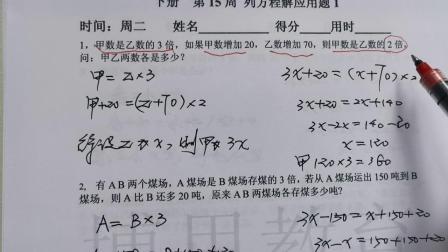 下册 第 15 周 列方程解应用题 1
时间：周二 姓名 得分 用时
1，甲数是乙数的 3 倍，如果甲数增加 20，乙数增加 70，则甲数是乙数的 2 倍，
问：甲乙两数各是多少？
甲=乙×3
甲+20=(乙+70)×2
解设乙为x，则甲为3x
3x+20=(x+70)×2
3x+20=2x+140
3x-2x=140-20
x=120
甲120×3=360
2，有 AB 两个煤场，A 煤场是 B 煤场存煤的 3 倍，若从 A 煤场运出 150 吨到 B
煤场，则 A 比 B 还多 20 吨，原来 AB 两煤场各存煤多少吨？
A=B×3
3x-150=x+150+20